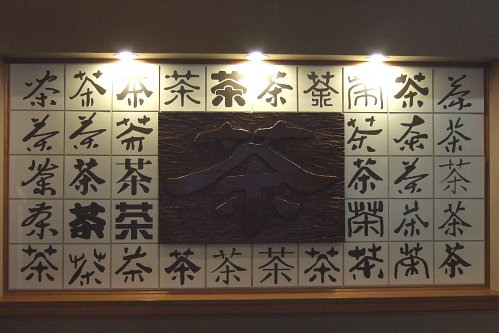 茶 茶 茶 茶 茶 茶 茶 茶 茶 茶
茶 茶 茶 茶 茶 茶
茶 茶 茶 茶 茶 茶 茶
茶 茶 茶 茶 茶 茶
茶 茶 茶 茶 茶 茶 茶 茶 茶 茶